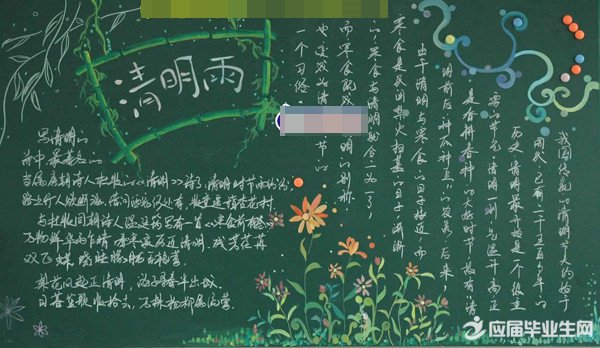 清明雨
写清明的
诗中最著名的
当属唐朝诗人杜牧的《清明》诗了,清明时节雨纷纷,
路上行人欲断魂。借问酒家何处有,牧童遥指杏花村
与杜牧同朝诗人
万物鲜华雨乍晴,春寒寂历近清明
双飞蝶,晓日
梨花风起正清明,游子寻春半出城
日暮笙歌收拾去,万株杨柳属流莺
我国传统的清明节大约始于
周代,已有二千五百多年的
历史,清明最开始是一个很重
要的节气,清明一到,气温升高,正
是春耕春种的大好时节,故有“清
明前后,种瓜种豆”的说法。后来,
由于清明与寒食的日子接近,而
寒食是民间禁火扫墓的日子,渐渐
的,寒食与清明就合二为一了,
而寒食既成为清明的别称,
也变成为清明时节的
一个习俗
应届毕业生网